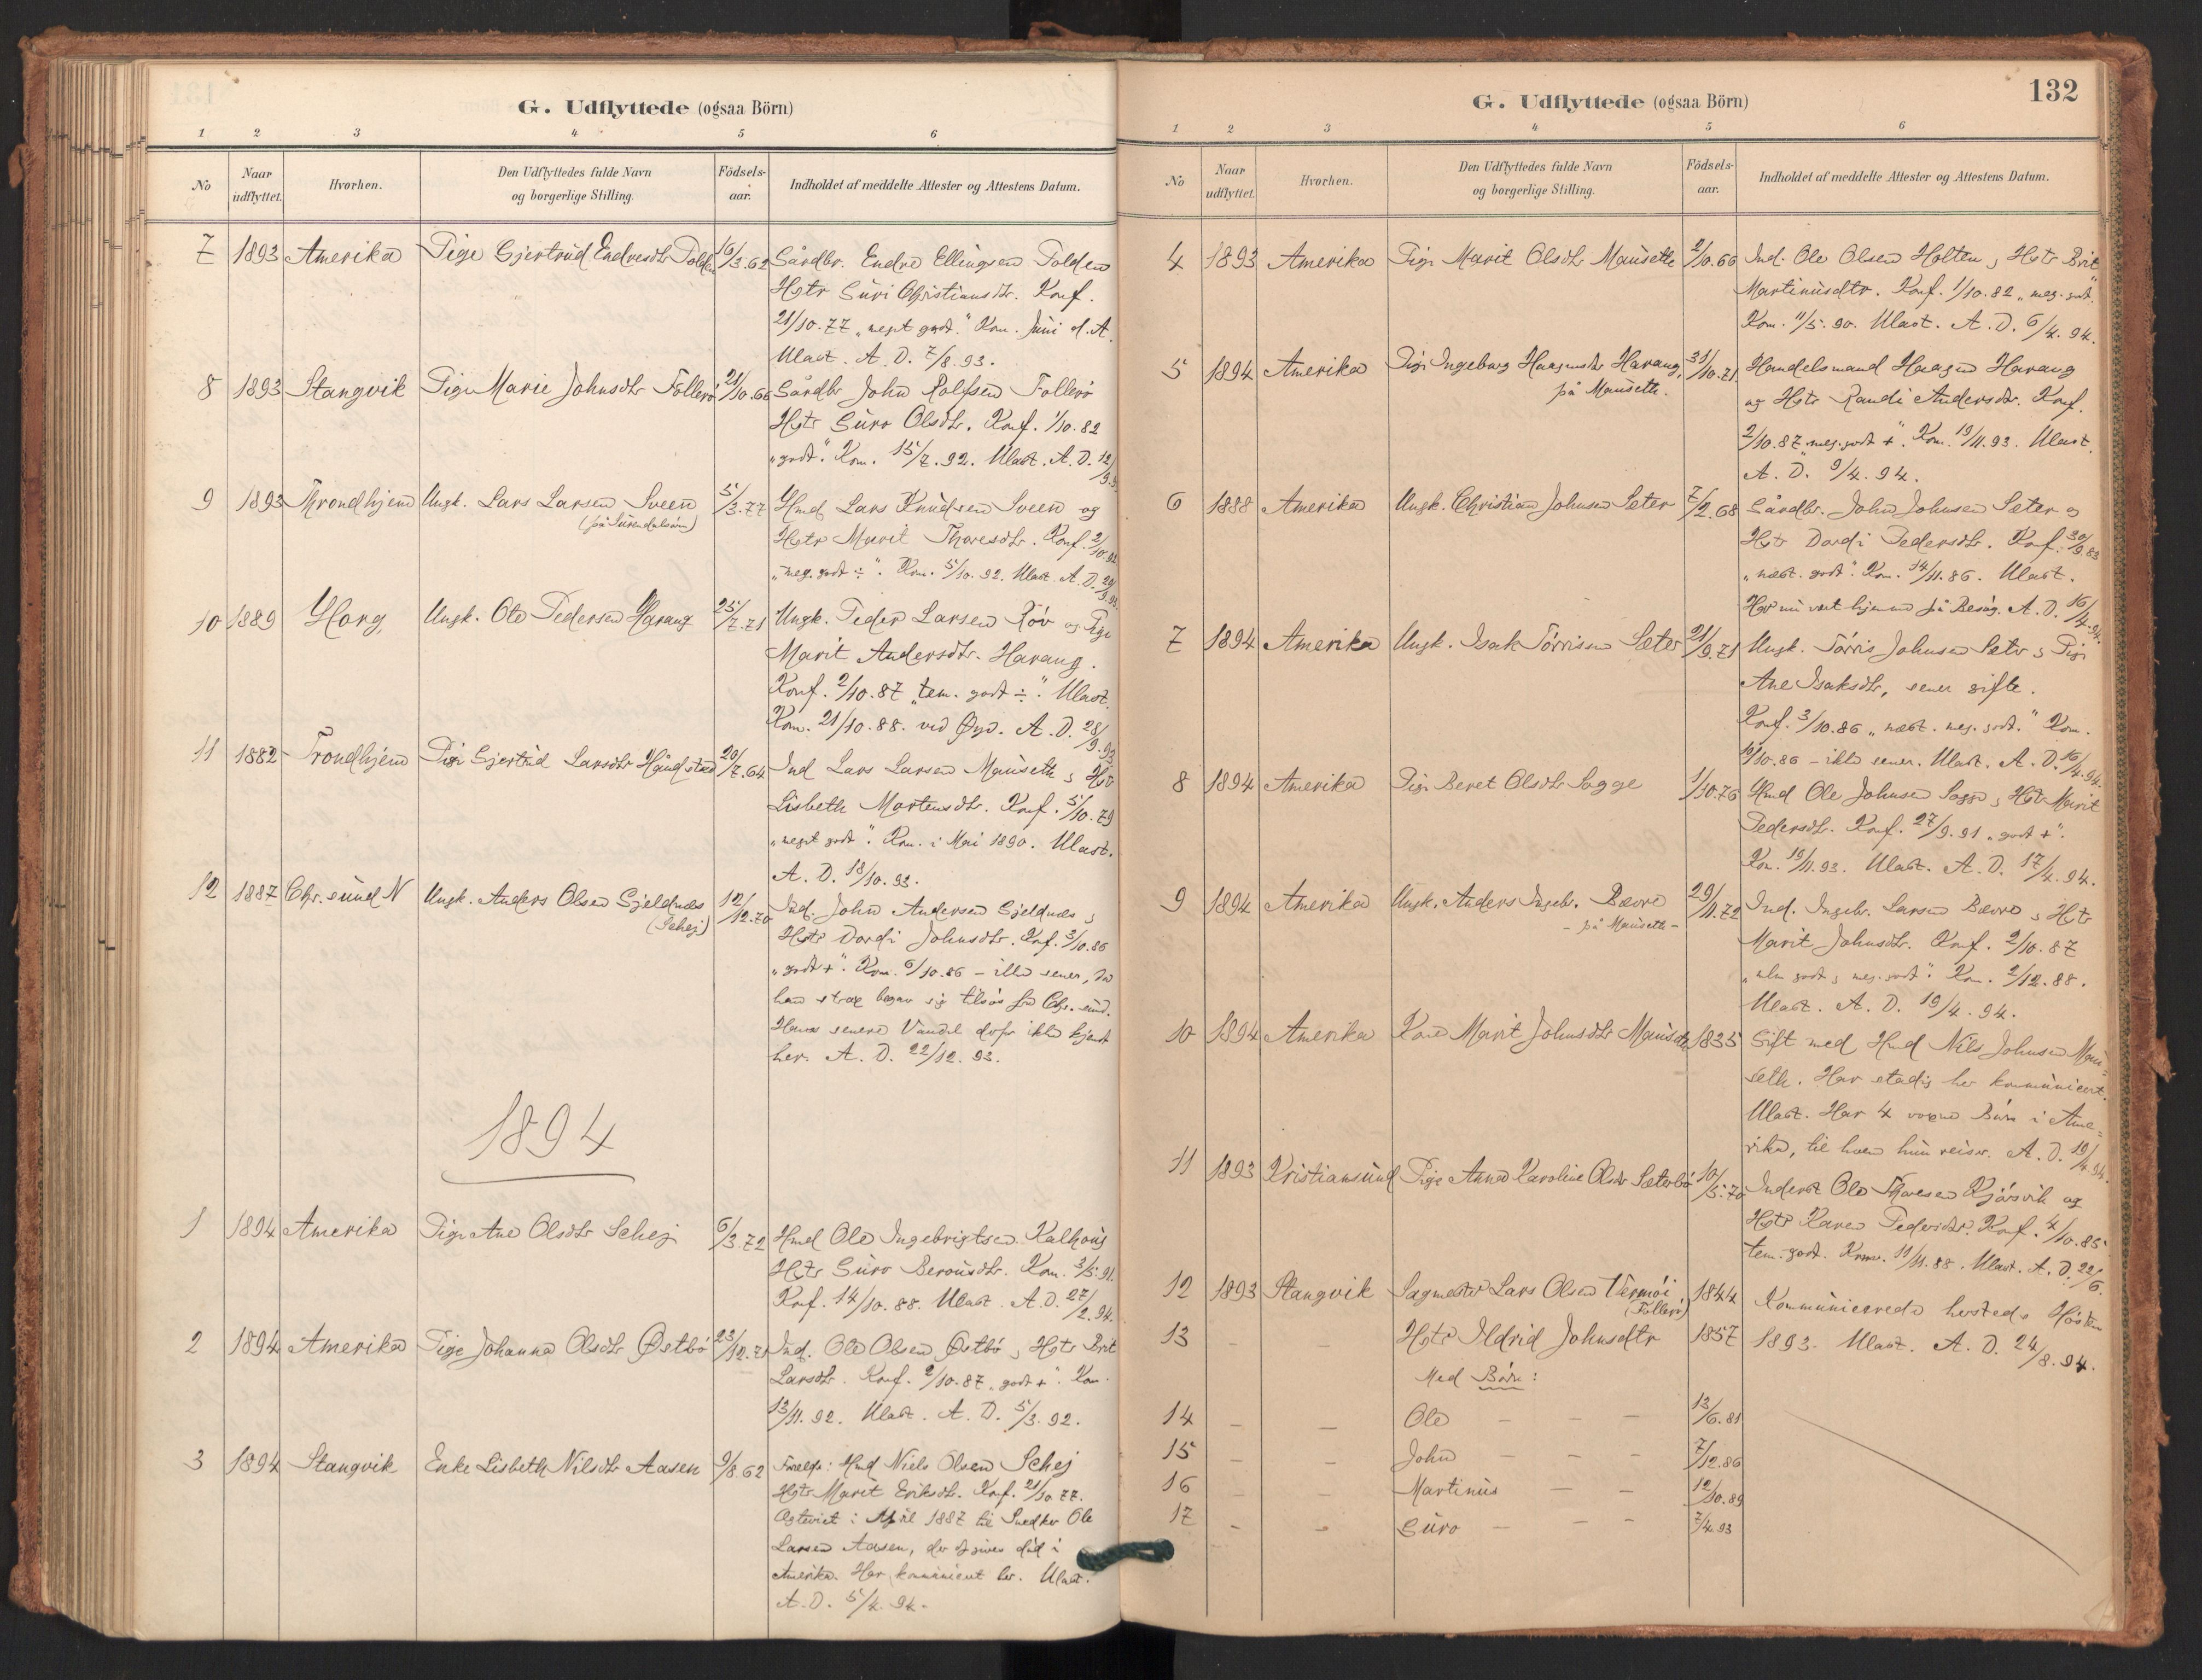 G. Udflyttede (ogsaa Börn)
1 2 3 4 5 6
No Naar udflyttet. Hvorhen. Den Udflyttedes fulde Navn og borgerlige Stilling. Födsels-aar. Indholdet af meddelte Attester og Attestens Datum.
7 1893 Amerika Pige Gjertrud Endresdtr Tolden 16/3.62 Gårdbr. Endre Ellingsen Tolden
Hstr Guri Christiansdtr. Konf.
21/10.77 "meget godt." Kom. Juni d. A.
Ulast. A. D. 7/8.93.
8 1893 Stangvik Pige Marie Johnsdtr Follerö 21/10.66 Gårdbr John Rolfsen Follerö
Hstr Guro Olsdtr. Konf. 1/10.82
"godt". Kom. 15/7.92. Ulast. A. D. 12/9.93
9 1893 Throndhjem Ungk. Lars Larsen Sveen 5/3.77 Hmd Lars Knudsen Sveen og
(på Surendalsøren)
Hstr Marit Tharesdtr. Konf. 2/10.92
"meg. godt ÷". Kom. 5/10.92. Ulast. A. D. 29/9.93.
10 1889 Horg Ungk. Ole Pedersen Harang 25/7.71 Ungk. Peder Larsen Röv og Pige
Marit Andersdtr. Harang.
Konf. 2/10.87 "tem. godt ÷". Ulast.
Kom. 21/10.88. ved Øyd. A. D. 28/9.93
11 1882 Trondhjem Pige Gjertrud Larsdtr Håndstad 20/7.64 Ind Lars Larsen Mauseth & Hstr
Lisbeth Mortensdtr. Konf. 5/10.79
"meget godt". Kom. i Mai 1890. Ulast.
A. D. 18/10.93.
12 1887 Chr.sund N Ungk. Anders Olsen Gjeldnæs 12/12.70 Ind. John Andersen Gjeldnæs &
(Schej)
Hstr Dordi Johnsdtr. Konf. 3/10.86
"godt+". Kom. 6/10.86 – ikke sener, da
han strax begav sig tilsös fra Chr.sund.
Hans senere Vandel derfor ikke kjendt
her. A. D. 22/12.93.
1894
1 1894 Amerika Pige Ane Olsdtr Schej 6/3.72 Hmd Ole Ingebrigtsen Kalhaug
Hstr Guro Berousdtr. Kom. 3/5.91.
Konf. 14/10.88. Ulast. A. D. 27/2.94.
2 1894 Amerika Pige Johanna Olsdtr Østbö 23/12.71 Ind. Ole Olsen Østbö & Hstr Brit
Larsdtr. Konf. 2/10.87 "godt+". Kom.
13/11.92. Ulast. A. D. 5/3.92.
3 1894 Stangvik Enke Lisbeth Nilsdtr Aasen 9/8.62 Forældr: Hmd Niels Olsen Schej
Hstr Marit Eriksdtr. Konf. 21/10.77.
i April 1887 til Snedker Ole
Larsen Aasen, der opgives död i
Amerika. Har kommunicert her. Ulast.
A. D. 5/4.94.
132
G. Udflyttede (ogsaa Börn)
1 2 3 4 5 6
No Naar udflyttet. Hvorhen. Den Udflyttedes fulde Navn og borgerlige Stilling. Födsels-aar. Indholdet af meddelte Attester og Attestens Datum.
4 1893 Amerika Pige Marit Olsdtr Mauseth 2/10.66 Ind. Ole Olsen Holten & Hstr Brit
Martinusdtr. Konf. 1/10.82 "meg. godt."
Kom. 11/5.90. Ulast. A. D. 6/4.94.
5 1894 Amerika Pige Ingeborg Haagensdtr Harang, 31/10.71. Handelsmand Haagen Harang
på Mauseth.
og Hstr Randi Andersdtr. Konf.
2/10.87 "meg. godt +". Kom. 19/11.93. Ulast.
A. D. 9/4.94.
6 1888 Amerika Ungk. Christian Johnsen Seter 7/2.68 Gårdbr. John Johnsen Seter og
Hstr Dordi Pedersdtr. Konf. 30/9.83
"næst. godt". Kom. 14/11.86. Ulast.
Har nu vært hjemme på Besög. A. D. 16/4.94.
7 1894 Amerika Ungk. Isak Törrisen Seter 21/9.71 Ungk. Törris Johnsen Seter & Pige
Ane Isaksdtr, sener gifte.
Konf. 3/10.86 "næst. meg. godt." Kom.
10/10.86 – ikke sener. Ulast. A. D. 16/4.94.
8 1894 Amerika Pige Beret Olsdtr Sogge 1/10.76 Hmd Ole Johnsen Sogge & Hstr Marit
Pedersdtr. Konf. 27/9.91 "godt +".
Kom. 19/11.93. Ulast. A. D. 17/4.94.
9 1894 Amerika Ungk. Anders Ingebr. Bævre 29/11.72 Ind. Ingebr. Larsen Bævre & Hstr
– på Mauseth –
Marit Johnsdtr. Konf. 2/10.87
"mlm godt & meg. godt". Kom. 2/12.88.
Ulast. A. D. 19/4.94.
10 1894 Amerika Kone Marit Johnsdtr Mauseth 1835 Gift med Hmd Nils Johnsen Mau=
seth. Har stadig her kommunicert.
Ulast. Har 4 voxne Börn i Ame=
rika, til hvem hun reiser. A. D. 19/4.94.
11 1893 Kristiansund Pige Anna Karoline Olsdtr Seterbö 10/5.70 Inderst Ole Tharesen Kjörsvik og
Hstr Karen Pedersdtr. Konf. 4/10.85
tem. godt. Kom. 11/11.88. Ulast. A. D. 22/6.
12 1893 Stangvik Sagmester Lars Olsen Värmöi 1844 Kommunicerede hersteds Hösten
(Follerö)
13 – – Hstr Ildrid Johnsdtr 1857 1893. Ulast. A. D. 24/8.94.
Med Börn:
14 – – Ole – – – 13/6.81
15 – – John – – – 7/12.86
16 – – Martinus – – 12/10.89
17 – – Guro – – – 7/4.93